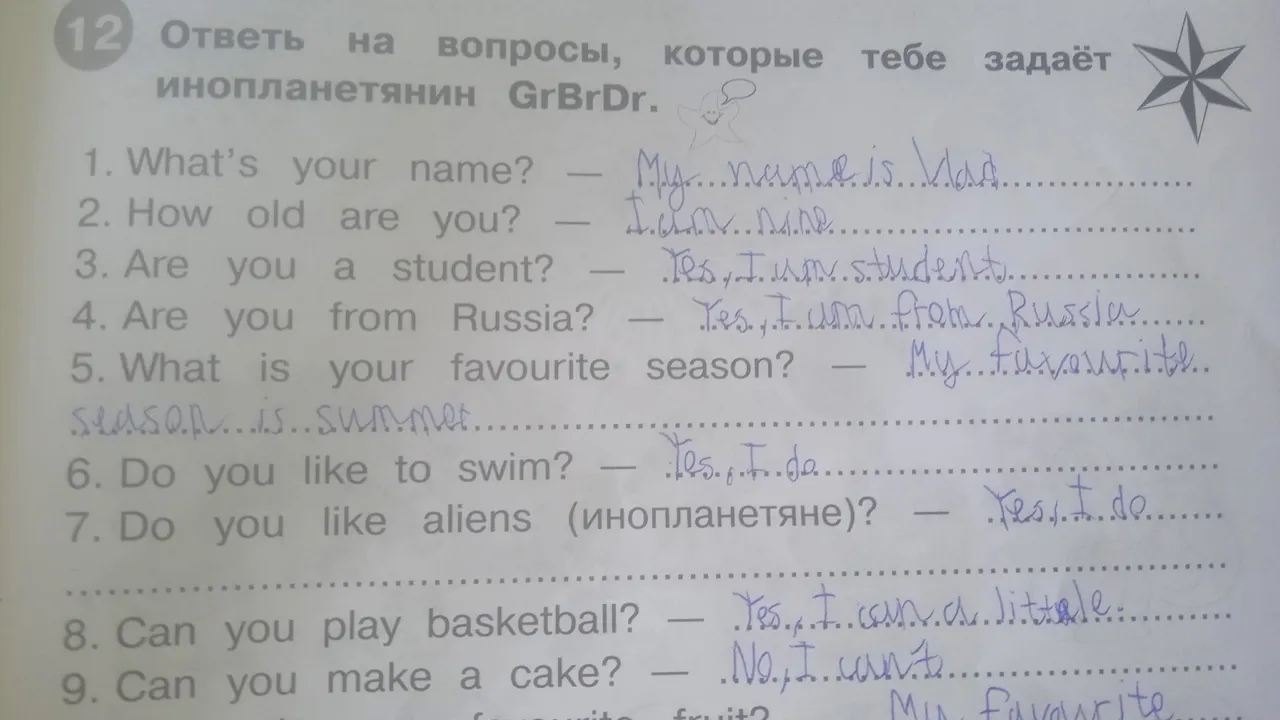 12 Ответь на вопросы, которые тебе задаёт
инопланетянин GrBrDr.
1. What's your name? — My name is Vlad
2. How old are you? — I am nine
3. Are you a student? — Yes, I am student
4. Are you from Russia? — Yes, I am from Russia
5. What is your favourite season? — My favourite
season is summer
6. Do you like to swim? — Yes, I do
7. Do you like aliens (инопланетяне)? — Yes, I do
8. Can you play basketball? — Yes, I can a little.
9. Can you make a cake? — No, I can't
favourite fruit? My favourite